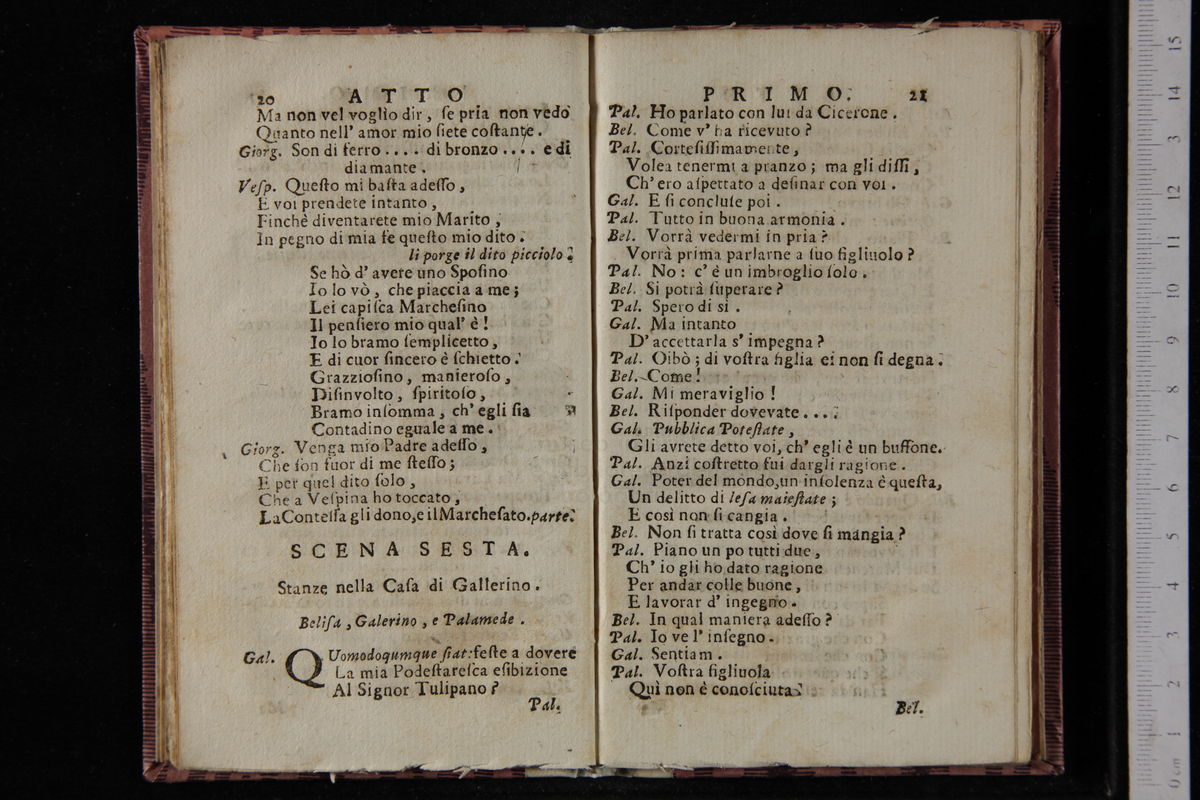 20 ATTO
Ma non vel voglio dir, ſe pria non vedo
Quanto nell' amor mio ſiete coſtante.
Giorg. Son di ferro .... di bronzo .... e di
diamante.
Veſp. Queſto mi baſta adeſſo,
E voi prendete intanto,
Finchè diventarete mio Marito,
In pegno di mia fe queſto mio dito.
li porge il dito picciolo.
Se hò d' avere uno Spoſino
Io lo vò, che piaccia a me;
Lei capiſca Marcheſino
Il penſiero mio qual' è!
Io lo bramo ſemplicetto,
E di cuor ſincero è ſchietto.
Grazzioſino, manieroſo,
Diſinvolto, ſpiritoſo,
Bramo inſomma, ch' egli ſia
Contadino eguale a me.
Giorg. Venga mio Padre adeſſo,
Che ſon fuor di me ſteſſo;
E per quel dito ſolo,
Che a Veſpina ho toccato,
La Conteſſa gli dono, e il Marcheſato. parte.
SCENA SESTA.
Stanze nella Caſa di Gallerino.
Beliſa, Galerino, e Palamede.
Gal. QUomodoqumque ſiat: feſte a dovere
La mia Podeſtareſca eſibizione
Al Signor Tulipano?
Pal.
PRIMO. 21
Pal. Ho parlato con lui da Cicerone.
Bel. Come v' ha ricevuto?
Pal. Corteſiſſimamente,
Volea tenermi a pranzo; ma gli diſſi,
Ch' ero aſpettato a deſinar con voi.
Gal. E ſi concluſe poi.
Pal. Tutto in buona armonia.
Bel. Vorrà vedermi in pria?
Vorrà prima parlarne a ſuo figliuolo?
Pal. No: c' è un imbroglio ſolo.
Bel. Si potrà ſuperare?
Pal. Spero di si.
Gal. Ma intanto
D' accettarla s' impegna?
Pal. Oibò; di voſtra figlia ei non ſi degna.
Bel. Come!
Gal. Mi meraviglio!
Bel. Riſponder dovevate....
Gal. Pubblica Poteſtate,
Gli avrete detto voi, ch' egli è un buffone.
Pal. Anzi coſtretto fui dargli ragione.
Gal. Poter del mondo, un inſolenza è queſta,
Un delitto di leſa maieſtate;
E così non ſi cangia.
Bel. Non ſi tratta così dove ſi mangia?
Pal. Piano un po tutti due,
Ch' io gli ho dato ragione
Per andar colle buone,
E lavorar d' ingegno.
Bel. In qual maniera adeſſo?
Pal. Io ve l' inſegno.
Gal. Sentiam.
Pal. Voſtra figliuola
Quì non è conoſciuta.
Bel.
0 cm 1 2 3 4 5 6 7 8 9 10 11 12 13 14 15